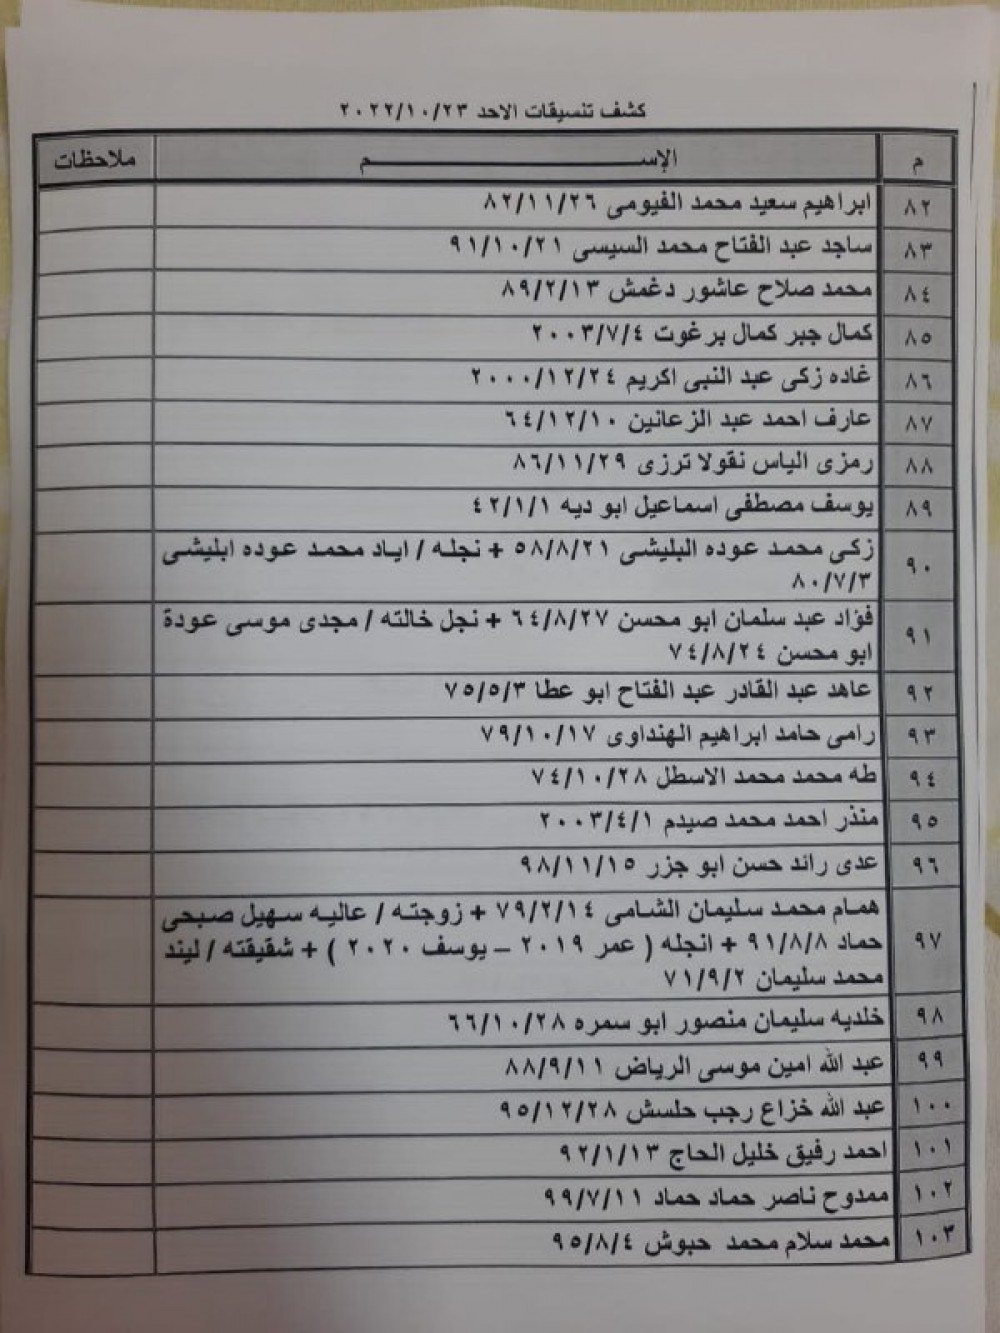 كشف تنسيقات الاحد ٢٠٢٢/١٠/٢٣
م الإســـم ملاحظات
٨٢ ابراهيم سعيد محمد الفيومى ٨٢/١١/٢٦
٨٣ ساجد عبد الفتاح محمد السيسى ٩١/١٠/٢١
٨٤ محمد صلاح عاشور دغمش ٨٩/٢/١٣
٨٥ كمال جبر كمال برغوت ٢٠٠٣/٧/٤
٨٦ غاده زكى عبد النبى اكريم ٢٠٠٠/١٢/٢٤
٨٧ عارف احمد عبد الزعانين ٦٤/١٢/١٠
٨٨ رمزى الياس نقولا ترزى ٨٦/١١/٢٩
٨٩ يوسف مصطفى اسماعيل ابو ديه ٤٢/١/١
٩٠ زكى محمد عوده البليشى ٥٨/٨/٢١ + نجله / اياد محمد عوده ابليشى
٨٠/٧/٣
٩١ فؤاد عبد سلمان ابو محسن ٦٤/٨/٢٧ + نجل خالته / مجدى موسى عودة
ابو محسن ٧٤/٨/٢٤
٩٢ عاهد عبد القادر عبد الفتاح ابو عطا ٧٥/٥/٣
٩٣ رامى حامد ابراهيم الهنداوى ٧٩/١٠/١٧
٩٤ طه محمد محمد الاسطل ٧٤/١٠/٢٨
٩٥ منذر احمد محمد صيدم ٢٠٠٣/٤/١
٩٦ عدى رائد حسن ابو جزر ٩٨/١١/١٥
٩٧ همام محمد سليمان الشامى ٧٩/٢/١٤ + زوجته / عاليه سهيل صبحى
حماد ٩١/٨/٨ + انجله ( عمر ٢٠١٩ – يوسف ٢٠٢٠ ) + شقيقته / ليند
محمد سليمان ٧١/٩/٢
٩٨ خلديه سليمان منصور ابو سمره ٦٦/١٠/٢٨
٩٩ عبد الله امين موسى الرياض ٨٨/٩/١١
١٠٠ عبد الله خزاع رجب حلسش ٩٥/١٢/٢٨
١٠١ احمد رفيق خليل الحاج ٩٢/١/١٣
١٠٢ ممدوح ناصر حماد حماد ٩٩/٧/١١
١٠٣ محمد سلام محمد حبوش ٩٥/٨/٤